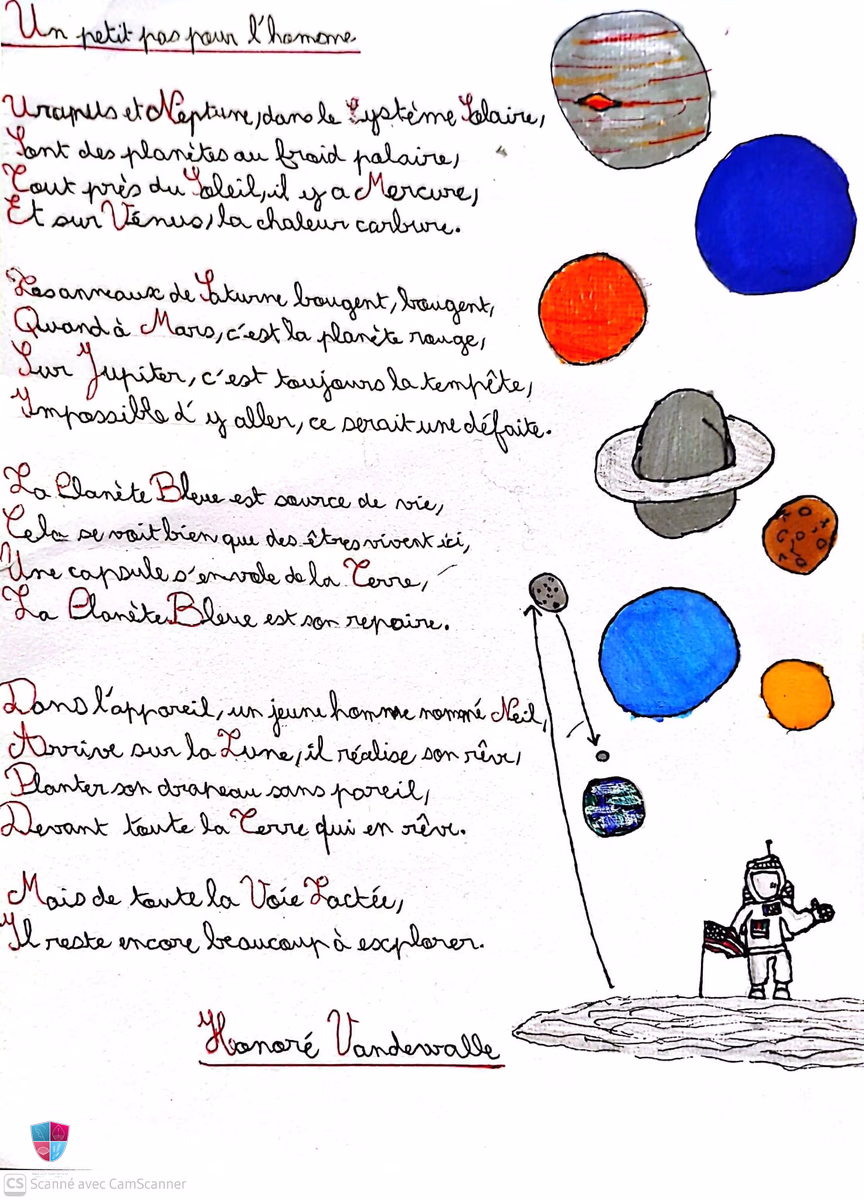 Un petit pas pour l'homme
Uranus et Neptune, dans le Système Solaire,
Sont des planètes au froid polaire,
Tout près du Soleil, il y a Mercure,
Et sur Vénus, la chaleur carbure.
Les anneaux de Saturne bougent, bougent,
Quand à Mars, c'est la planète rouge,
Sur Jupiter, c'est toujours la tempête,
Impossible d'y aller, ce serait une défaite.
La Planète Bleue est source de vie,
Cela se voit bien que des êtres vivent ici,
Une capsule s'envole de la Terre,
La Planète Bleue est son repaire.
Dans l'appareil, un jeune homme nommé Neil,
Arrive sur la Lune, il réalise son rêve,
Planter son drapeau sans pareil,
Devant toute la Terre qui en rêve.
Mais de toute la Voie Lactée,
Il reste encore beaucoup à explorer.
Honoré Vandewalle
CS Scanné avec CamScanner